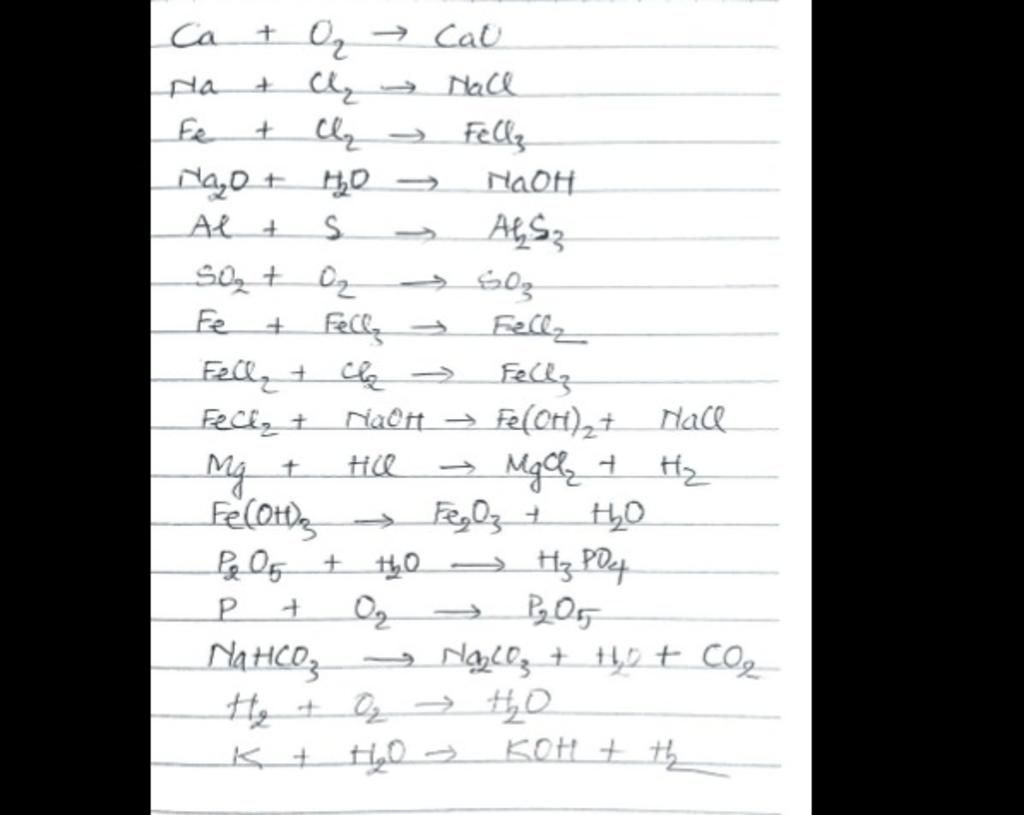 Ca + O₂ → CaO
Na + Cl₂ → NaCl
Fe + Cl₂ → FeCl₃
Na₂O + H₂O → NaOH
Al + S → Al₂S₃
SO₂ + O₂ → SO₃
Fe + FeCl₃ → FeCl₂
FeCl₂ + Cl₂ → FeCl₃
FeCl₂ + NaOH → Fe(OH)₂ + NaCl
Mg + HCl → MgCl₂ + H₂
Fe(OH)₃ → Fe₂O₃ + H₂O
P₂O₅ + H₂O → H₃PO₄
P + O₂ → P₂O₅
NaHCO₃ → Na₂CO₃ + H₂O + CO₂
H₂ + O₂ → H₂O
K + H₂O → KOH + H₂